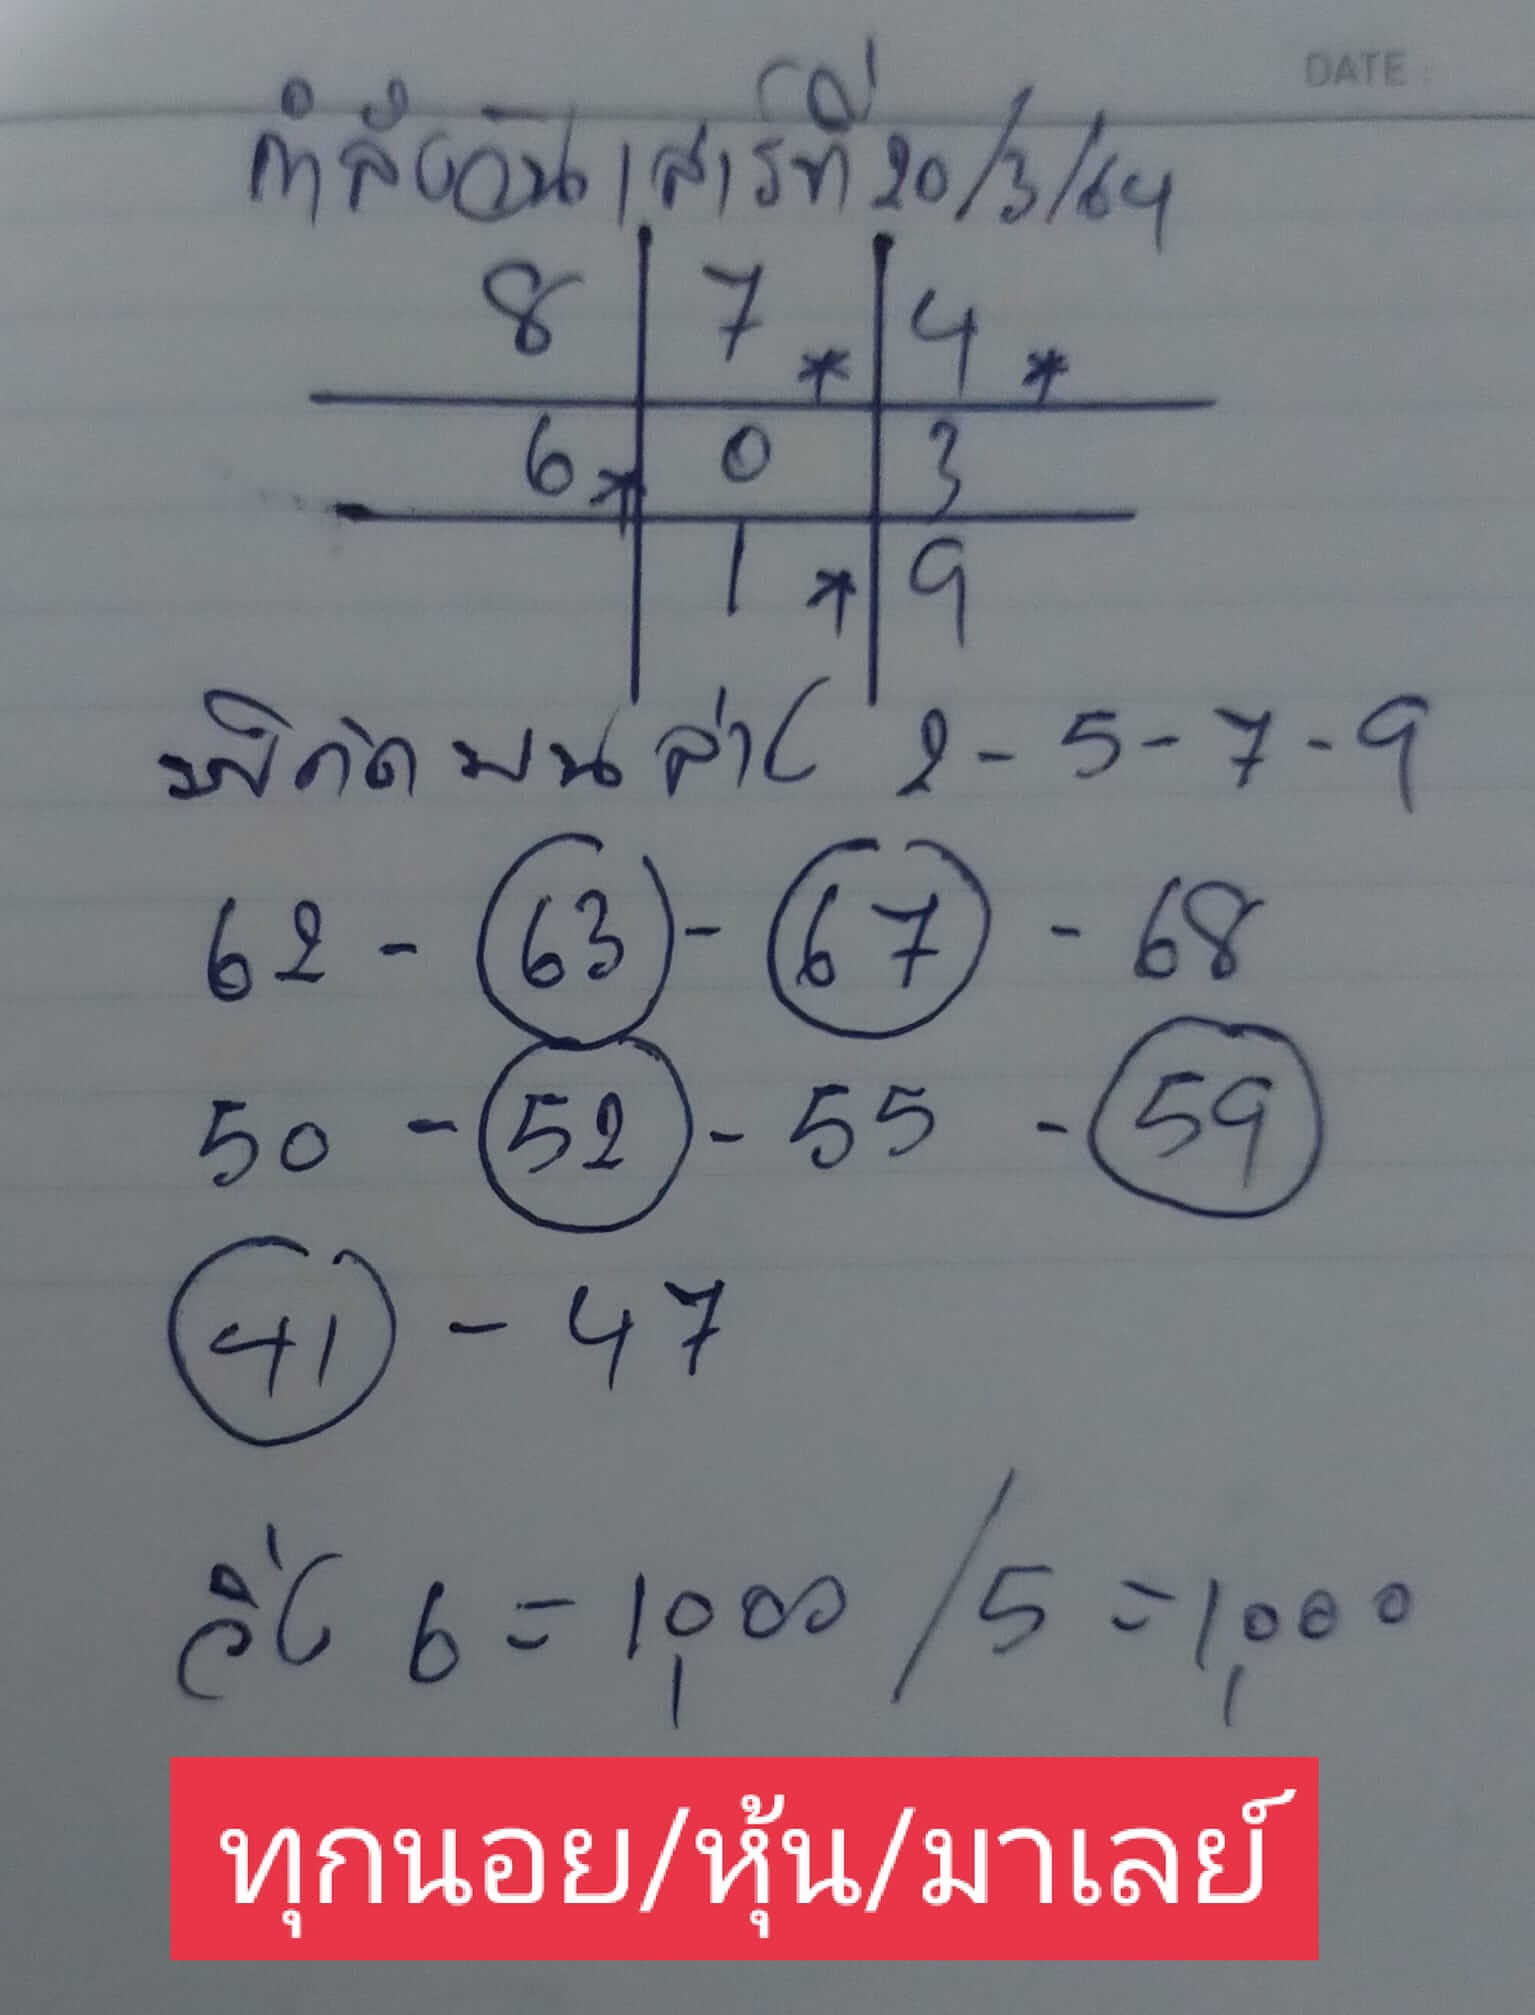 DATE :
กำลังวันเสาร์ที่ 20/3/64
8 7 * 4 *
6 * 0 3
1 * 9
พิกัด บน ล่าง 2 - 5 - 7 - 9
62 - 63 - 67 - 68
50 - 52 - 55 - 59
41 - 47
วิ่ง 6 = 1,000 / 5 = 1,000
ทุกนอย/หุ้น/มาเลย์